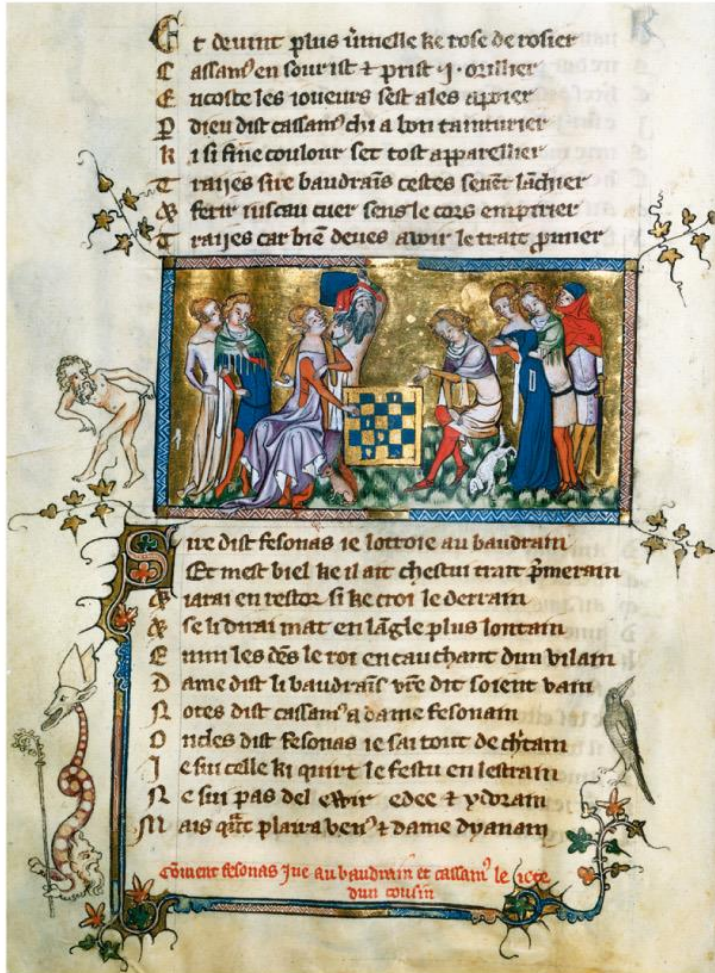 Et devint plus vmelle ke rose de rosier
Cassamꝰ en sourist ⁊ prist .j. orillier
Encoste les ioueurs sest ales apoier
P dieu dist cassamꝰ chi a bon tainturier
Ki si fine coulour set tost appareillier
Traijes sire baudrais cestes seuent lachier
& ferir iuscau cuer sens le cors empirier
Traijes car bie deues avoir le trait pmier
Sire dist fesonas ie lottroie au baudrain
Et mest biel ke il ait chestui trait pmerain
& iarai en restor si ke croi le derrain
& se li dirai mat en lagle plus lontain
Enmi les des le roi en cauchant dun vilain
Dame dist li baudrais vre dit soient vain
Notes dist cassamꝰ a dame fesonain
Oncles dist fesonas ie sai tout de
Je sui celle ki quirt le festu en lestrain
Ne sui pas del edee ⁊ ydorain
Mais qut plaira venꝰ ⁊ dame dyanain
Coment fesonas Jue au baudrain et cassamꝰ le iete
dun cousin